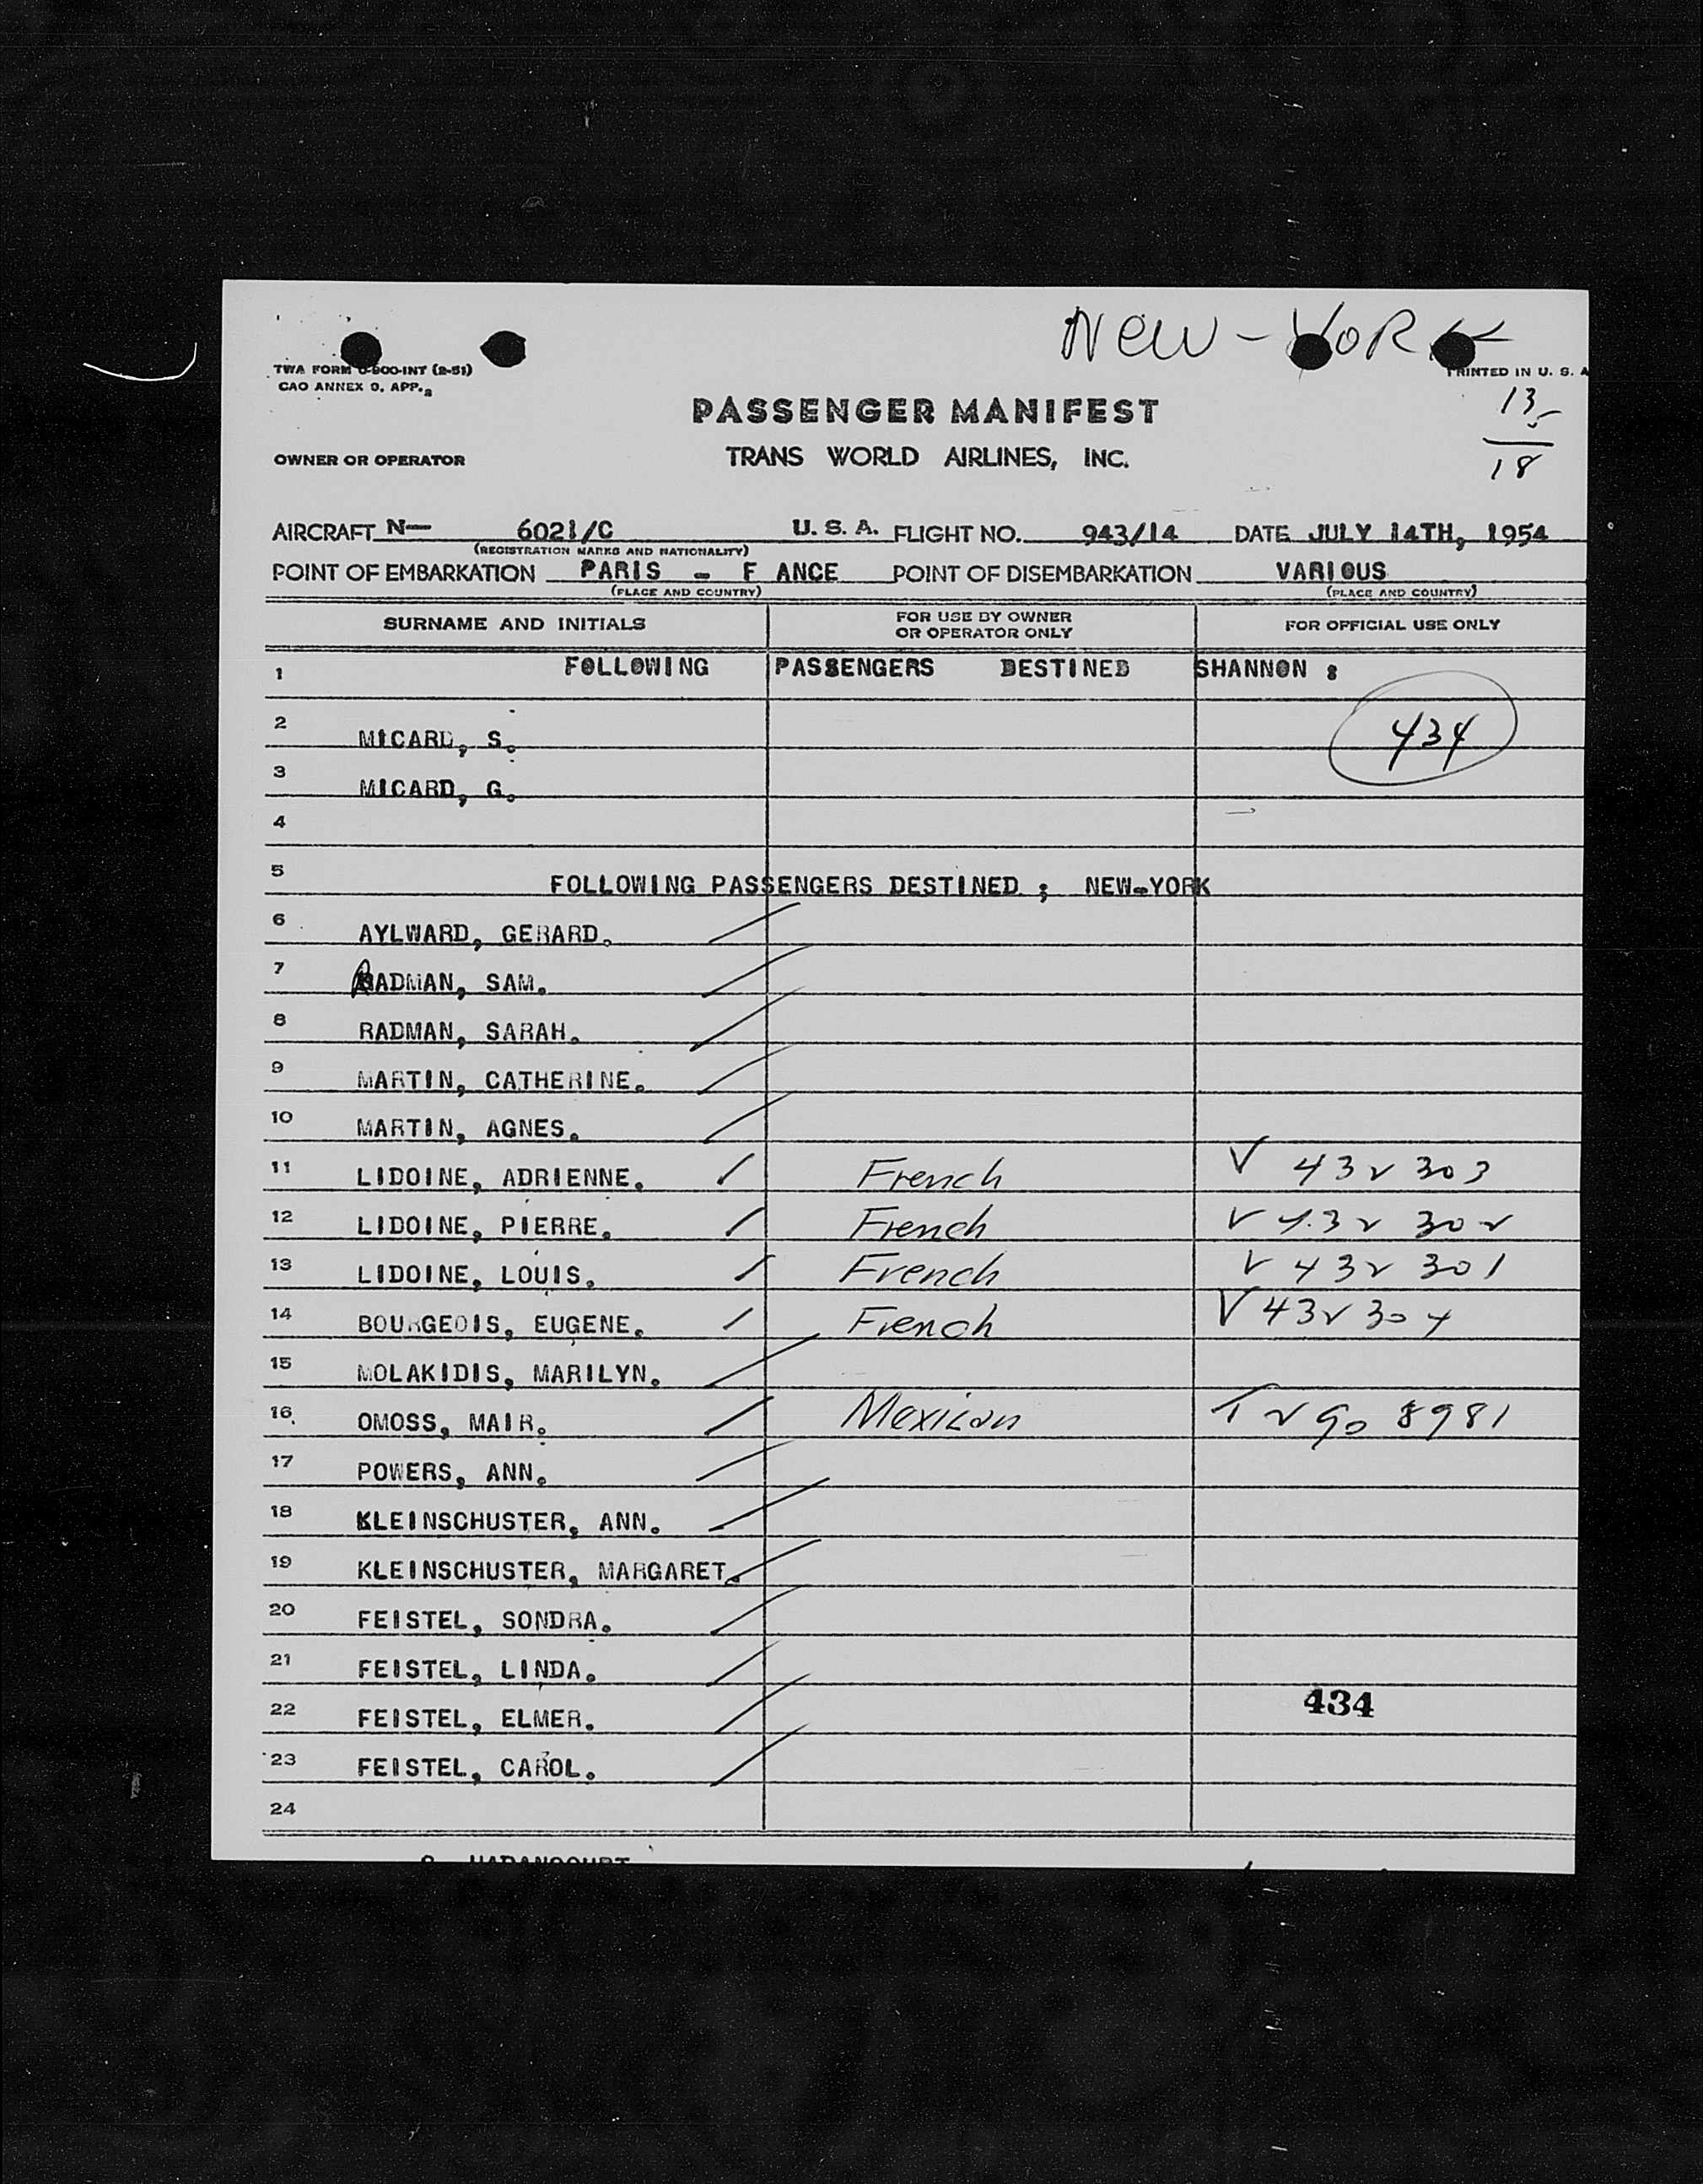 NEW-YORK
TWA FORM O-900-INT (2-51)
CAO ANNEX 9, APP. 2
PRINTED IN U. S. A
13
18
PASSENGER MANIFEST
OWNER OR OPERATOR
TRANS WORLD AIRLINES, INC.
AIRCRAFT N— 6021/C U. S. A. FLIGHT NO. 943/14 DATE JULY 14TH, 1954
(REGISTRATION MARKS AND NATIONALITY)
POINT OF EMBARKATION PARIS - F ANCE POINT OF DISEMBARKATION VARIOUS
(PLACE AND COUNTRY) (PLACE AND COUNTRY)
SURNAME AND INITIALS FOR USE BY OWNER OR OPERATOR ONLY FOR OFFICIAL USE ONLY
1 FOLLOWING PASSENGERS DESTINED SHANNON :
2 MICARD, S. 434
3 MICARD, G.
4
5 FOLLOWING PASSENGERS DESTINED ; NEW-YORK
6 AYLWARD, GERARD.
7 RADMAN, SAM.
8 RADMAN, SARAH.
9 MARTIN, CATHERINE.
10 MARTIN, AGNES.
11 LIDOINE, ADRIENNE. French V 432 303
12 LIDOINE, PIERRE. French V 432 302
13 LIDOINE, LOUIS. French V 432 301
14 BOURGEOIS, EUGENE. French V 432 304
15 MOLAKIDIS, MARILYN.
16 OMOSS, MAIR. Mexican 8981
17 POWERS, ANN.
18 KLEINSCHUSTER, ANN.
19 KLEINSCHUSTER, MARGARET.
20 FEISTEL, SONDRA.
21 FEISTEL, LINDA.
22 FEISTEL, ELMER. 434
23 FEISTEL, CAROL.
24